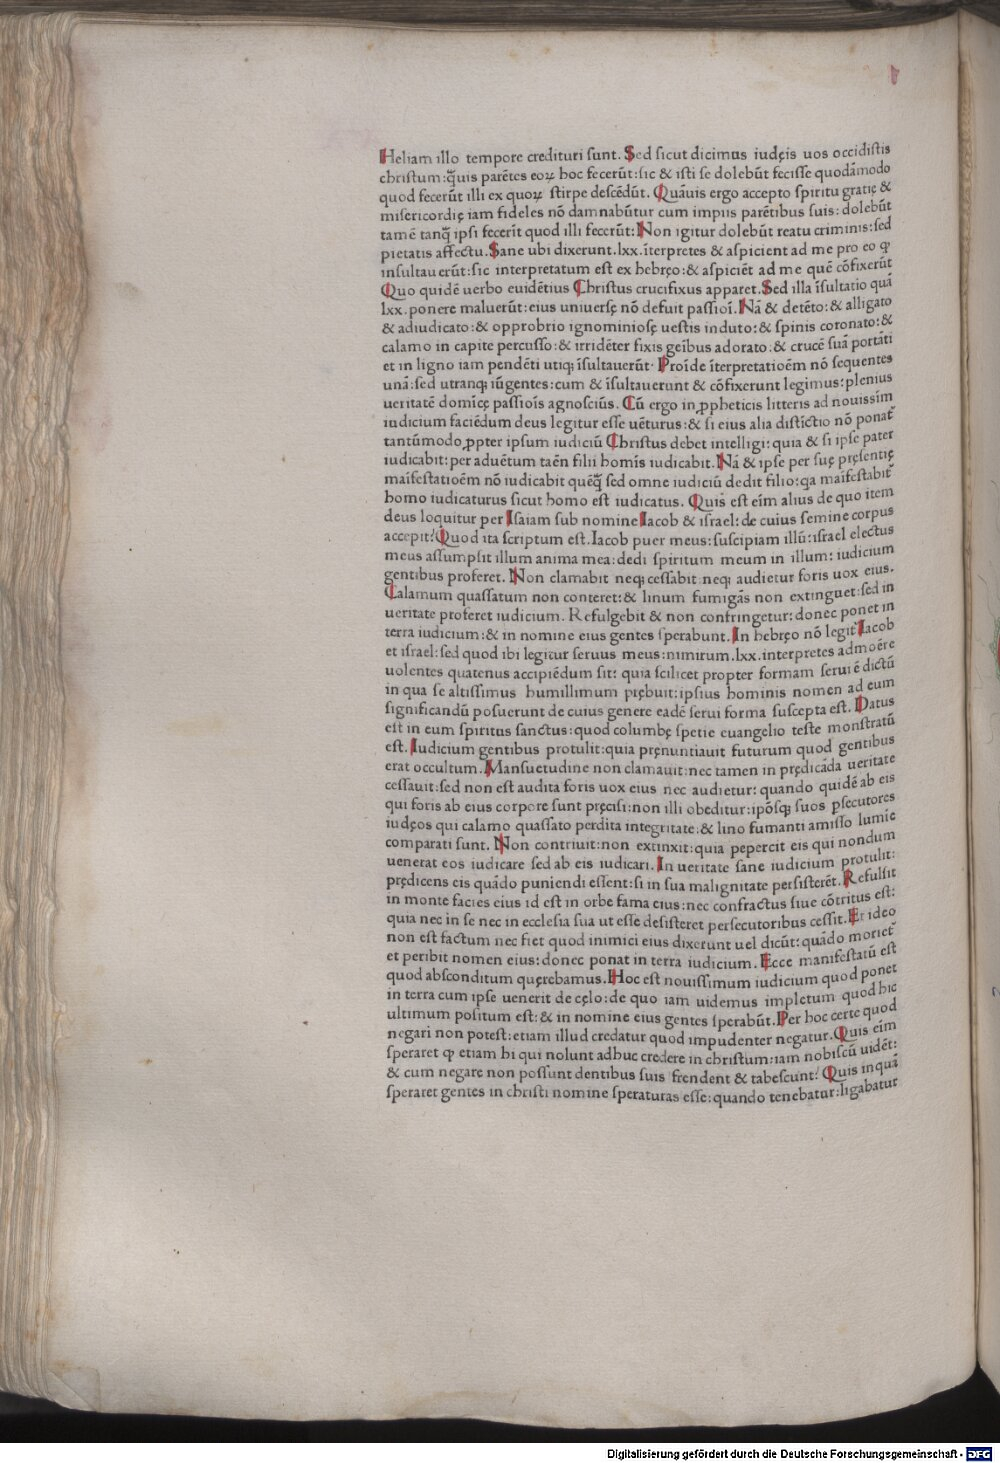 Heliam illo tempore credituri sunt. Sed sicut dicimus iudęis uos occidistis
christum: q̃uis parẽtes eoꝝ hoc fecerũt: sic & isti se dolebũt fecisse quodãmodo
quod fecerũt illi ex quoꝝ stirpe descẽdũt. Quãuis ergo accepto spiritu gratię &
misericordię iam fideles nõ damnabũtur cum impiis parẽtibus suis: dolebũt
tamẽ tanq̃ ipsi fecerĩt quod illi fecerũt: Non igitur dolebũt reatu criminis: sed
pietatis affectu. Sane ubi dixerunt .lxx. ĩterpretes & aspicient ad me pro eo ꝙ
insultauerũt: sic interpretatum est ex hebręo: & aspiciẽt ad me quẽ cõfixerũt
Quo quidẽ uerbo euidẽtius Christus crucifixus apparet. Sed illa ĩsultatio quã
lxx. ponere maluerũt: eius uniuersę nõ defuit passioĩ. Nã & detẽto: & alligato
& adiudicato: & opprobrio ignominiosę uestis induto: & spinis coronato: &
calamo in capite percusso: & irridẽter fixis geĩbus adorato: & crucẽ suã portãti
et in ligno iam pendẽti utiqꝫ ĩsultauerũt. Proĩde ĩterpretatioẽm nõ sequentes
unã: sed utranqꝫ iũgentes: cum & ĩsultauerunt & cõfixerunt legimus: plenius
ueritatẽ domicę passiõis agnosciũs. Cũ ergo in ꝓpheticis litteris ad nouissim̃
iudicium faciẽdum deus legitur esse uẽturus: & si eius alia distĩctio nõ ponat᷑
tantũmodo ꝓpter ipsum iudiciũ Christus debet intelligi: quia & si ipse pater
iudicabit: per aduẽtum taẽn filii homĩs iudicabit. Nã & ipse per suę pręsentię
maĩfestatioẽm nõ iudicabit quẽq̃ sed omne iudiciũ dedit filio: qa maĩfestabit᷑
homo iudicaturus sicut homo est iudicatus. Quis est eĩm alius de quo item
deus loquitur per Isaiam sub nomine Iacob & israel: de cuius semine corpus
accepit? Quod ita scriptum est. Iacob puer meus: suscipiam illũ: israel electus
meus assumpsit illum anima mea: dedi spiritum meum in illum: iudicium
gentibus proferet. Non clamabit neqꝫ cessabit neqꝫ audietur foris uox eius.
Calamum quassatum non conteret: & linum fumigãs non extinguet: sed in
ueritate proferet iudicium. Refulgebit & non confringetur: donec ponet in
terra iudicium: & in nomine eius gentes sperabunt. In hebręo nõ legit᷑ Iacob
et israel: sed quod ibi legitur seruus meus: nimirum .lxx. interpretes admoẽre
uolentes quatenus accipiẽdum sit: quia scilicet propter formam serui ẽ dictũ
in qua se altissimus humillimum prębuit: ipsius hominis nomen ad eum
significandũ posuerunt de cuius genere eadẽ serui forma suscepta est. Datus
est in eum spiritus sanctus: quod columbę spetie euangelio teste monstratũ
est. Iudicium gentibus protulit: quia pręnuntiauit futurum quod gentibus
erat occultum. Mansuetudine non clamauit: nec tamen in prędicãda ueritate
cessauit: sed non est audita foris uox eius nec audietur: quando quidẽ ab eis
qui foris ab eius corpore sunt pręcisi: non illi obeditur: ipõsqꝫ suos ꝑsecutores
iudęos qui calamo quassato perdita integritate: & lino fumanti amisso lumĩe
comparati sunt. Non contriuit: non extinxit: quia pepercit eis qui nondum
uenerat eos iudicare sed ab eis iudicari. In ueritate sane iudicium protulit:
prędicens eis quãdo puniendi essent: si in sua malignitate persisterẽt. Refulsit
in monte facies eius id est in orbe fama eius: nec confractus siue cõtritus est:
quia nec in se nec in ecclesia sua ut esse desisteret persecutoribus cessit. Et ideo
non est factum nec fiet quod inimici eius dixerunt uel dicũt: quãdo moriet᷑
et peribit nomen eius: donec ponat in terra iudicium. Ecce manifestatũ est
quod absconditum quęrebamus. Hoc est nouissimum iudicium quod ponet
in terra cum ipse uenerit de cęlo: de quo iam uidemus impletum quod hic
ultimum positum est: & in nomine eius gentes sperabũt. Per hoc certe quod
negari non potest: etiam illud credatur quod impudenter negatur. Quis eĩm
speraret ꝙ etiam hi qui nolunt adhuc credere in christum: iam nobiscũ uidẽt:
& cum negare non possunt dentibus suis frendent & tabescunt? Quis inquã
speraret gentes in christi nomine speraturas esse: quando tenebatur: ligabatur
Digitalisierung gefördert durch die Deutsche Forschungsgemeinschaft - DFG